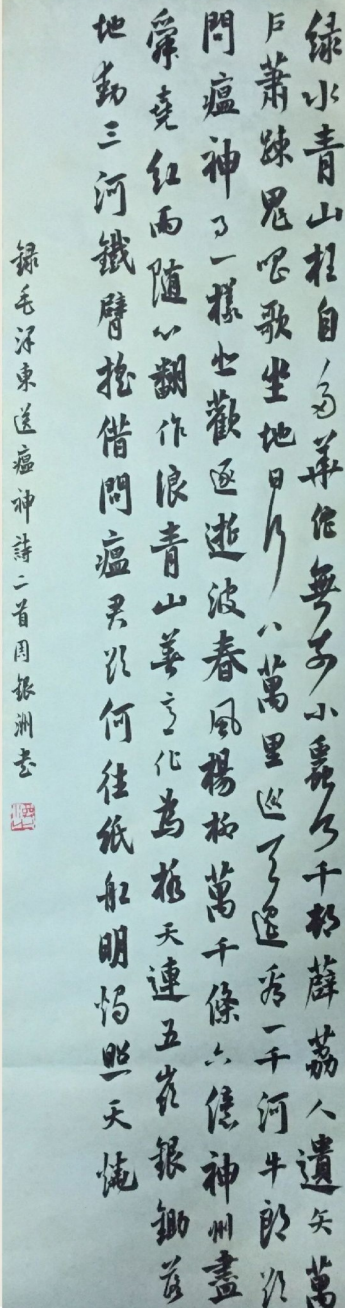 绿水青山枉自多華佗無奈小蟲何千邨薜荔人遺矢萬
戶蕭疎鬼唱歌坐地日行八萬里巡天遥看一千河牛郎欲
問瘟神事一樣悲歡逐逝波春風楊柳萬千條六億神州盡
舜堯紅雨随心翻作浪青山着意化為橋天連五嶺銀鋤落
地動三河鐵臂摇借問瘟君欲何往纸船明燭照天燒
録毛澤東送瘟神詩二首周銀洲書